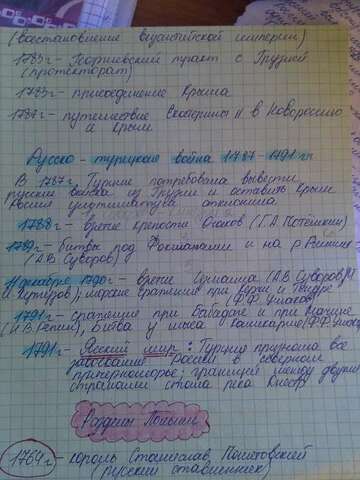 (восстановление византийской империи)
1783г - Георгиевский тракт с Грузией
(протекторат)
1783г - присоединение Крыма
1787г - путешествие Екатерины II в Новороссию
и Крым
Русско - турецкая война 1787-1791 гг
В 1787г Турция потребовала вывести
русские войска из Грузии и оставить Крым
Россия ультиматум отклонила
1788г - взятие крепости Очаков (Г.А Потёмкин)
1789г - битвы под Фокшанами и на р. Рымник -
(А.В Суворов)
11 декабря 1790г - взятие Измаила (А.В Суворов, М
И Кутузов); морские сражения при Керчи и Тендре
(Ф.Ф. Ушаков)
1791г - сражение при Бабадаге и при Мачине
(Н.В Репнин), Битва у мыса Калиакрие (Ф.Ф. Ушаков
1791г - Ясский мир: Турция признала все
завоевания России в северном
причерноморье; границей между двумя
странами стала река Днестр
Разделы Польши
1764г - король Станислав Понятовский
(русский ставленник)